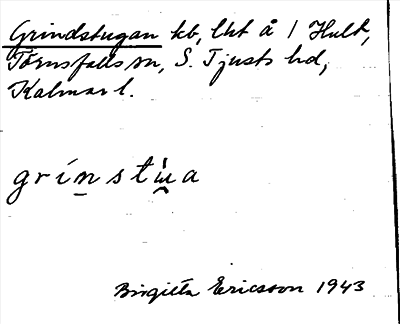 Grindstugan kb, lht å 1 Hult,
Törnsfalls sn, S. Tjusts hd,
Kalmar l.
grı́n̲stù̯a
Birgitta Ericsson 1943